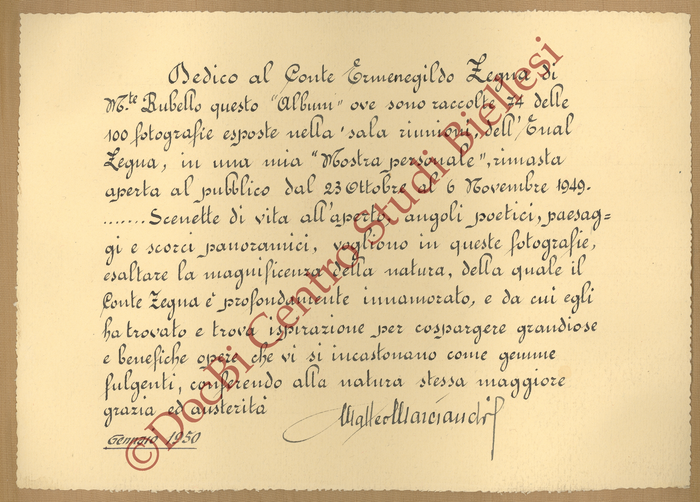 Dedico al Conte Ermenegildo Zegna di
M.te Rubello questo "Album" ove sono raccolte 74 delle
100 fotografie esposte nella sala riunioni, dell'Enal
Zegna, in una mia "Mostra personale", rimasta
aperta al pubblico dal 23 Ottobre al 6 Novembre 1949.
.......Scenette di vita all'aperto, angoli poetici, paesag=
gi e scorci panoramici, vogliono in queste fotografie,
esaltare la magnificenza della natura, della quale il
Conte Zegna è profondamente innamorato, e da cui egli
ha trovato e trova ispirazione per cospargere grandiose
e benefiche opere che vi si incastonano come gemme
fulgenti, conferendo alla natura stessa maggiore
grazia ed austerità
Matteo Marciandi
Gennaio 1950
©DocBi Centro Studi Biellesi